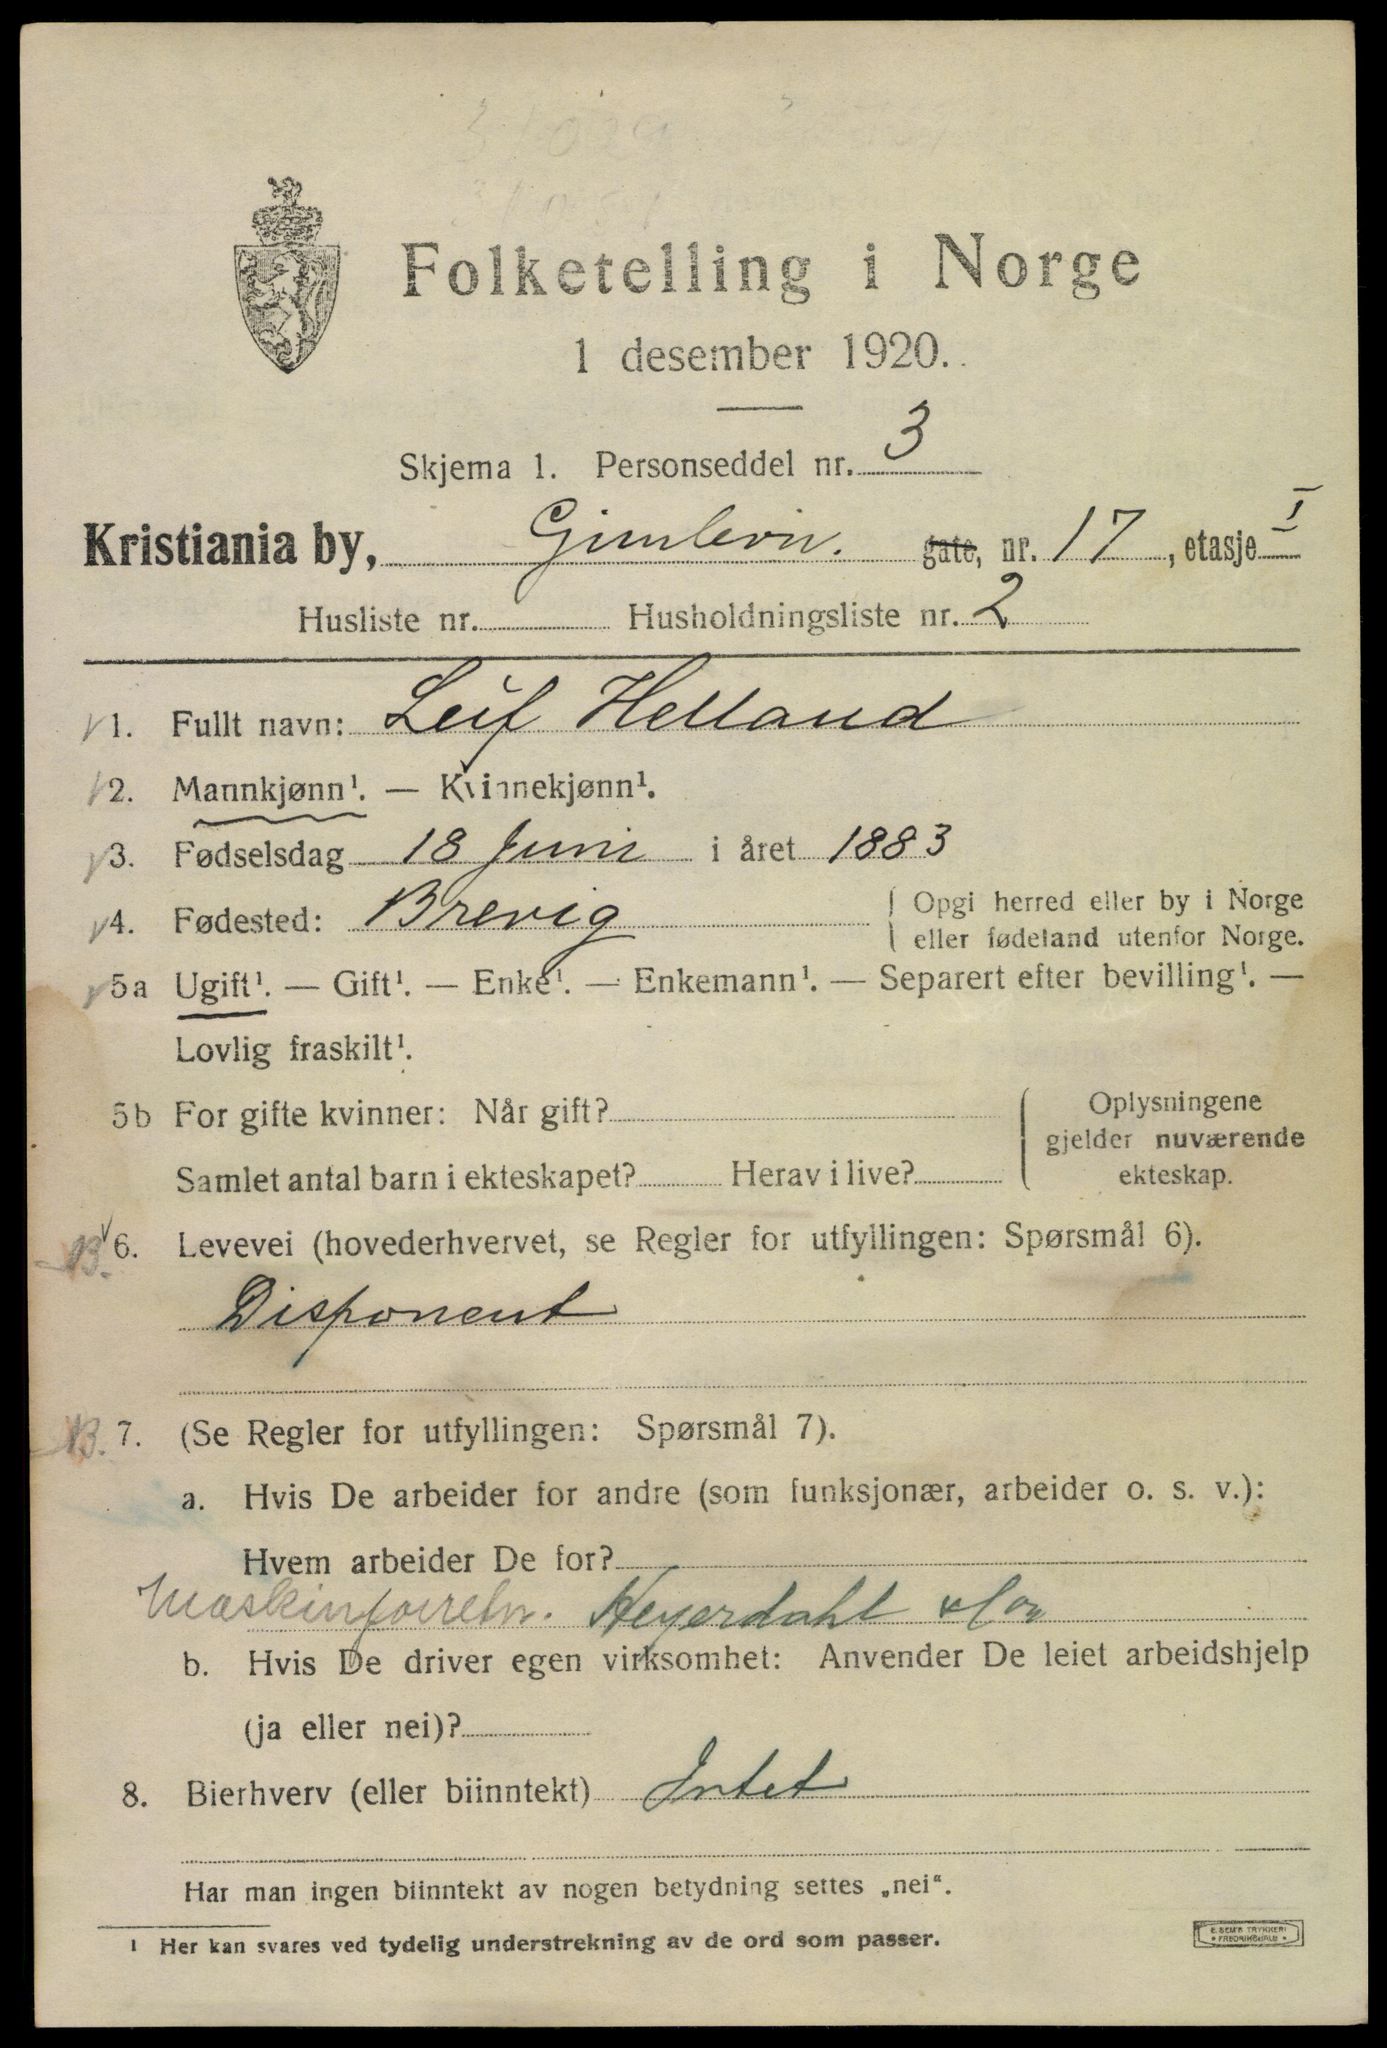 Folketelling i Norge
1 desember 1920.
Skjema 1. Personseddel nr. 3
Kristiania by, Gimlevn. gate, nr. 17, etasje I
Husliste nr. Husholdningsliste nr. 2
1. Fullt navn: Leif Helland
2. Mannkjønn¹. — Kvinnekjønn¹.
3. Fødselsdag 18 Juni i året 1883
4. Fødested: Brevig { Opgi herred eller by i Norge
eller fødeland utenfor Norge.
5a Ugift¹. — Gift¹. — Enke¹. — Enkemann¹. — Separert efter bevilling¹. —
Lovlig fraskilt¹.
5b For gifte kvinner: Når gift? { Oplysningene
gjelder nuværende
Samlet antal barn i ekteskapet? Herav i live? ekteskap.
B. 6. Levevei (hovederhvervet, se Regler for utfyllingen: Spørsmål 6).
Disponent
B. 7. (Se Regler for utfyllingen: Spørsmål 7).
a. Hvis De arbeider for andre (som funksjonær, arbeider o. s. v.):
Hvem arbeider De for?
Maskinforretn. Heyerdahl & Co
b. Hvis De driver egen virksomhet: Anvender De leiet arbeidshjelp
(ja eller nei)?
8. Bierhverv (eller biinntekt) Intet
Har man ingen biinntekt av nogen betydning settes „nei“.
¹ Her kan svares ved tydelig understrekning av de ord som passer.
E. SEM'S TRYKKERI
FREDRIKSHALD